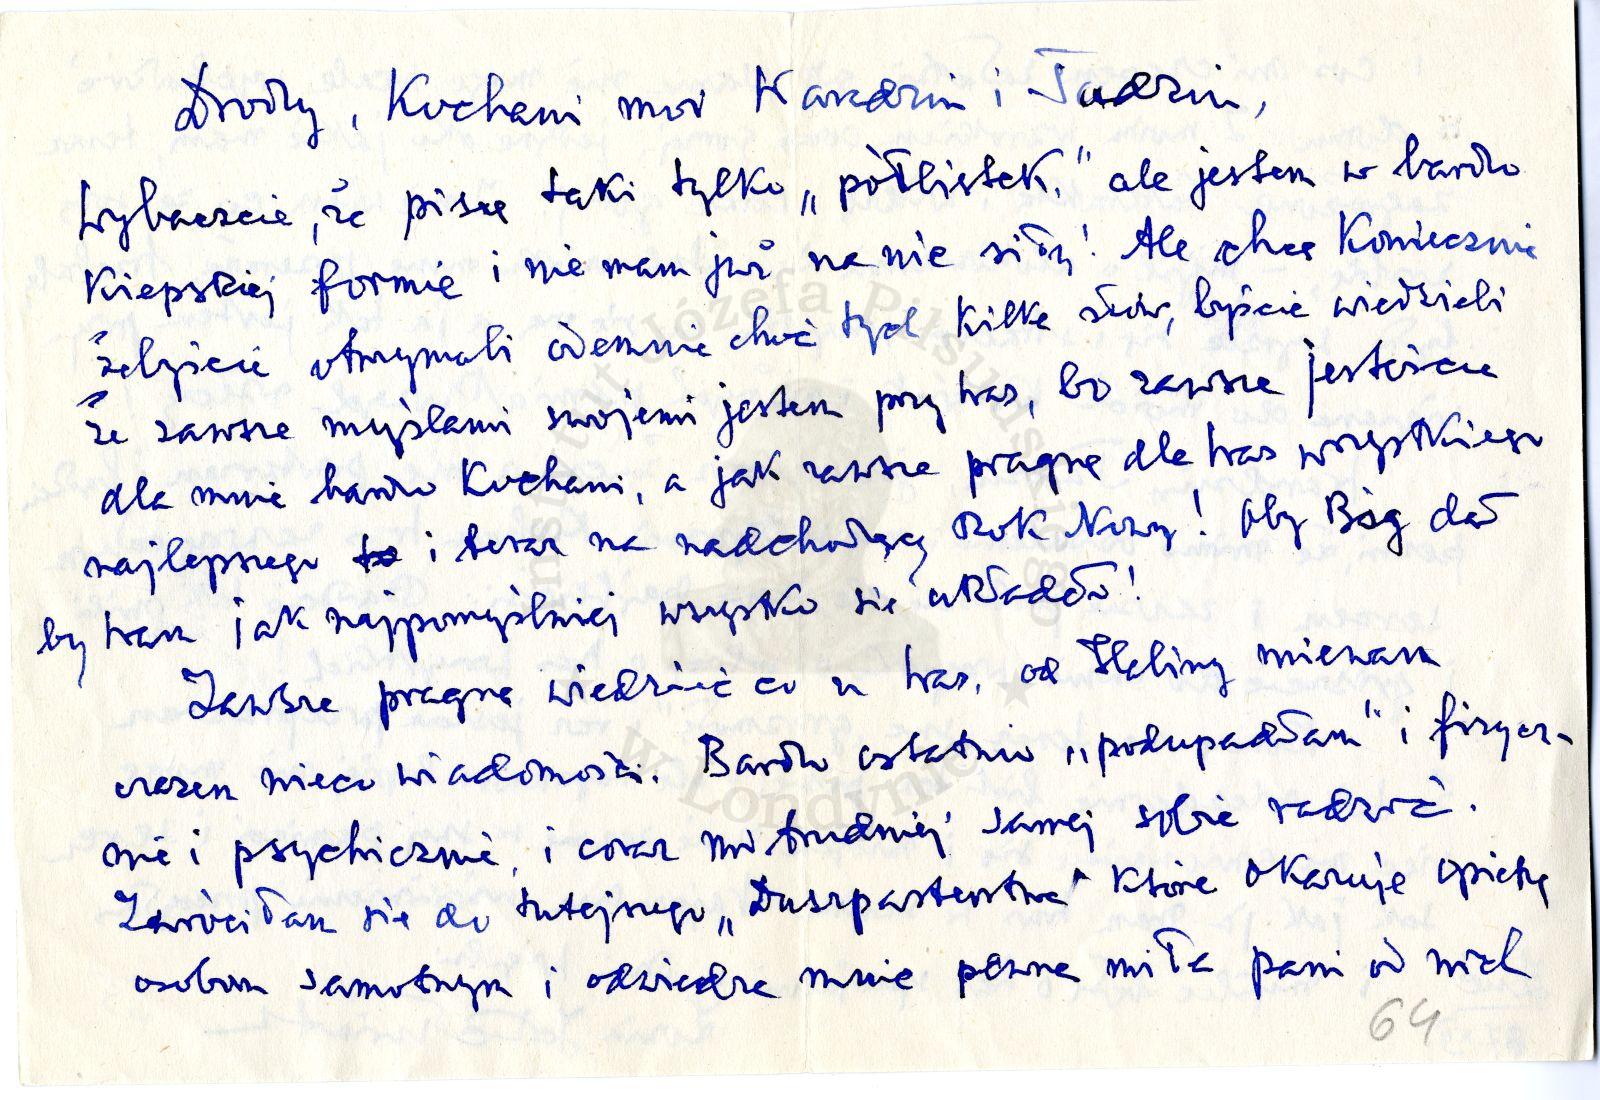 Drodzy, Kochani moi Wandziu i Tadziu,
Wybaczcie, że piszę taki tylko „półlistek," ale jestem w bardzo
kiepskiej formie i nie mam już na nic siły! Ale chcę koniecznie
żebyście otrzymali odemnie choć tych kilka słów, byście wiedzieli
że zawsze myślami swojemi jestem przy Was, bo zawsze jesteście
dla mnie bardzo Kochani, a jak zawsze pragnę dla Was wszystkiego
najlepszego i teraz na nadchodzący Rok Nowy! Oby Bóg dał
by Wam jak najpomyślniej wszystko się układało!
Zawsze pragnę wiedzieć co u Was, od Haliny miewam
czasem nieco wiadomości. Bardzo ostatnio „podupadłam" i fizycz-
nie i psychicznie, i coraz mi trudniej samej sobie radzić.
Zwróciłam się do tutejszego „Duszpasterstwa" które okazuje opiekę
osobom samotnym i odwiedza mnie pewna miła pani od nich
64
Instytut Józefa Piłsudskiego
w Londynie